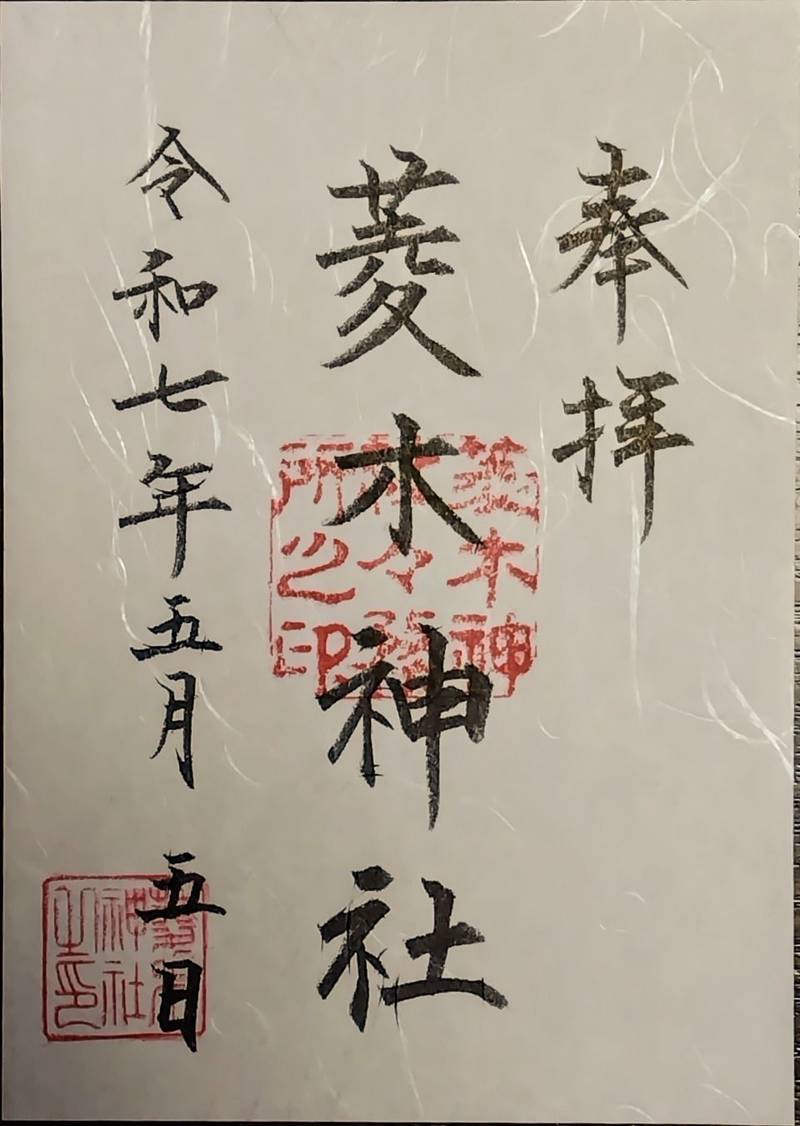 奉拝
菱木神社
菱木神
社々務
所之印
令和七年五月五日
神社
之印